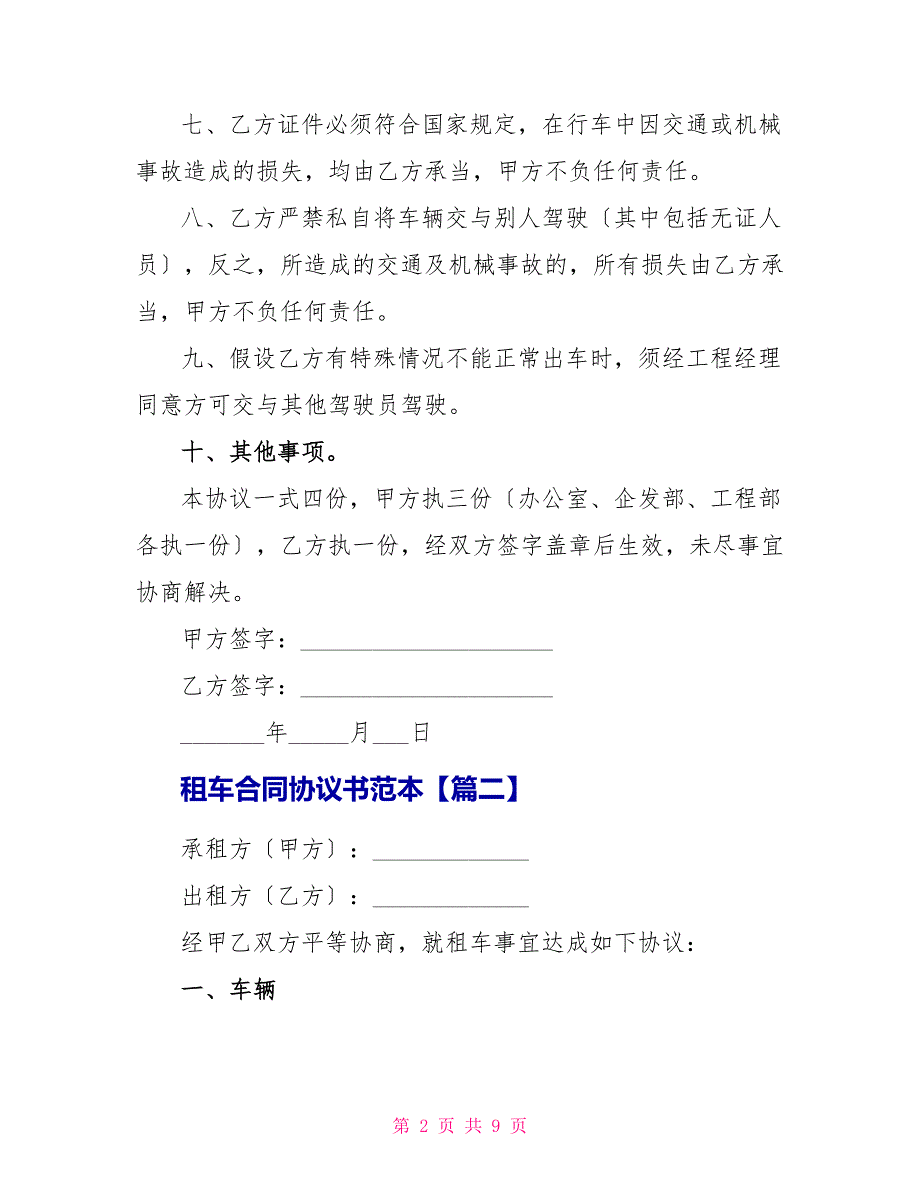 七、乙方证件必须符合国家规定，在行车中因交通或机械
事故造成的损失，均由乙方承当，甲方不负任何责任。
八、乙方严禁私自将车辆交与别人驾驶〔其中包括无证人
员〕，反之，所造成的交通及机械事故的，所有损失由乙方承
当，甲方不负任何责任。
九、假设乙方有特殊情况不能正常出车时，须经工程经理
同意方可交与其他驾驶员驾驶。
十、其他事项。
本协议一式四份，甲方执三份〔办公室、企发部、工程部
各执一份〕，乙方执一份，经双方签字盖章后生效，未尽事宜
协商解决。
甲方签字：_____________________
乙方签字：_____________________
_______年_____月___日
租车合同协议书范本【篇二】
承租方〔甲方〕：_____________
出租方〔乙方〕：_____________
经甲乙双方平等协商，就租车事宜达成如下协议：
一、车辆
第 2 页 共 9 页